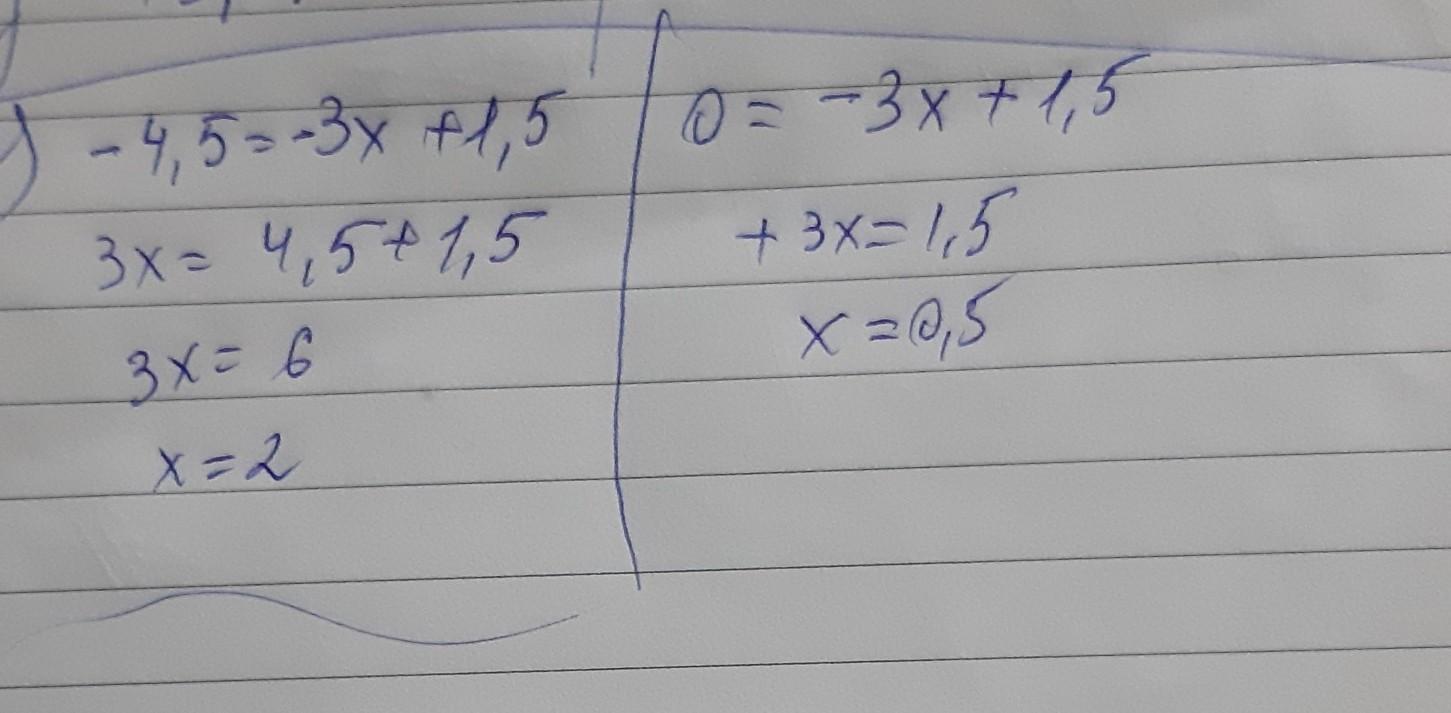 ) -4,5=-3x+1,5
3x= 4,5+1,5
3x= 6
x=2
0= -3x+1,5
+3x=1,5
x=0,5